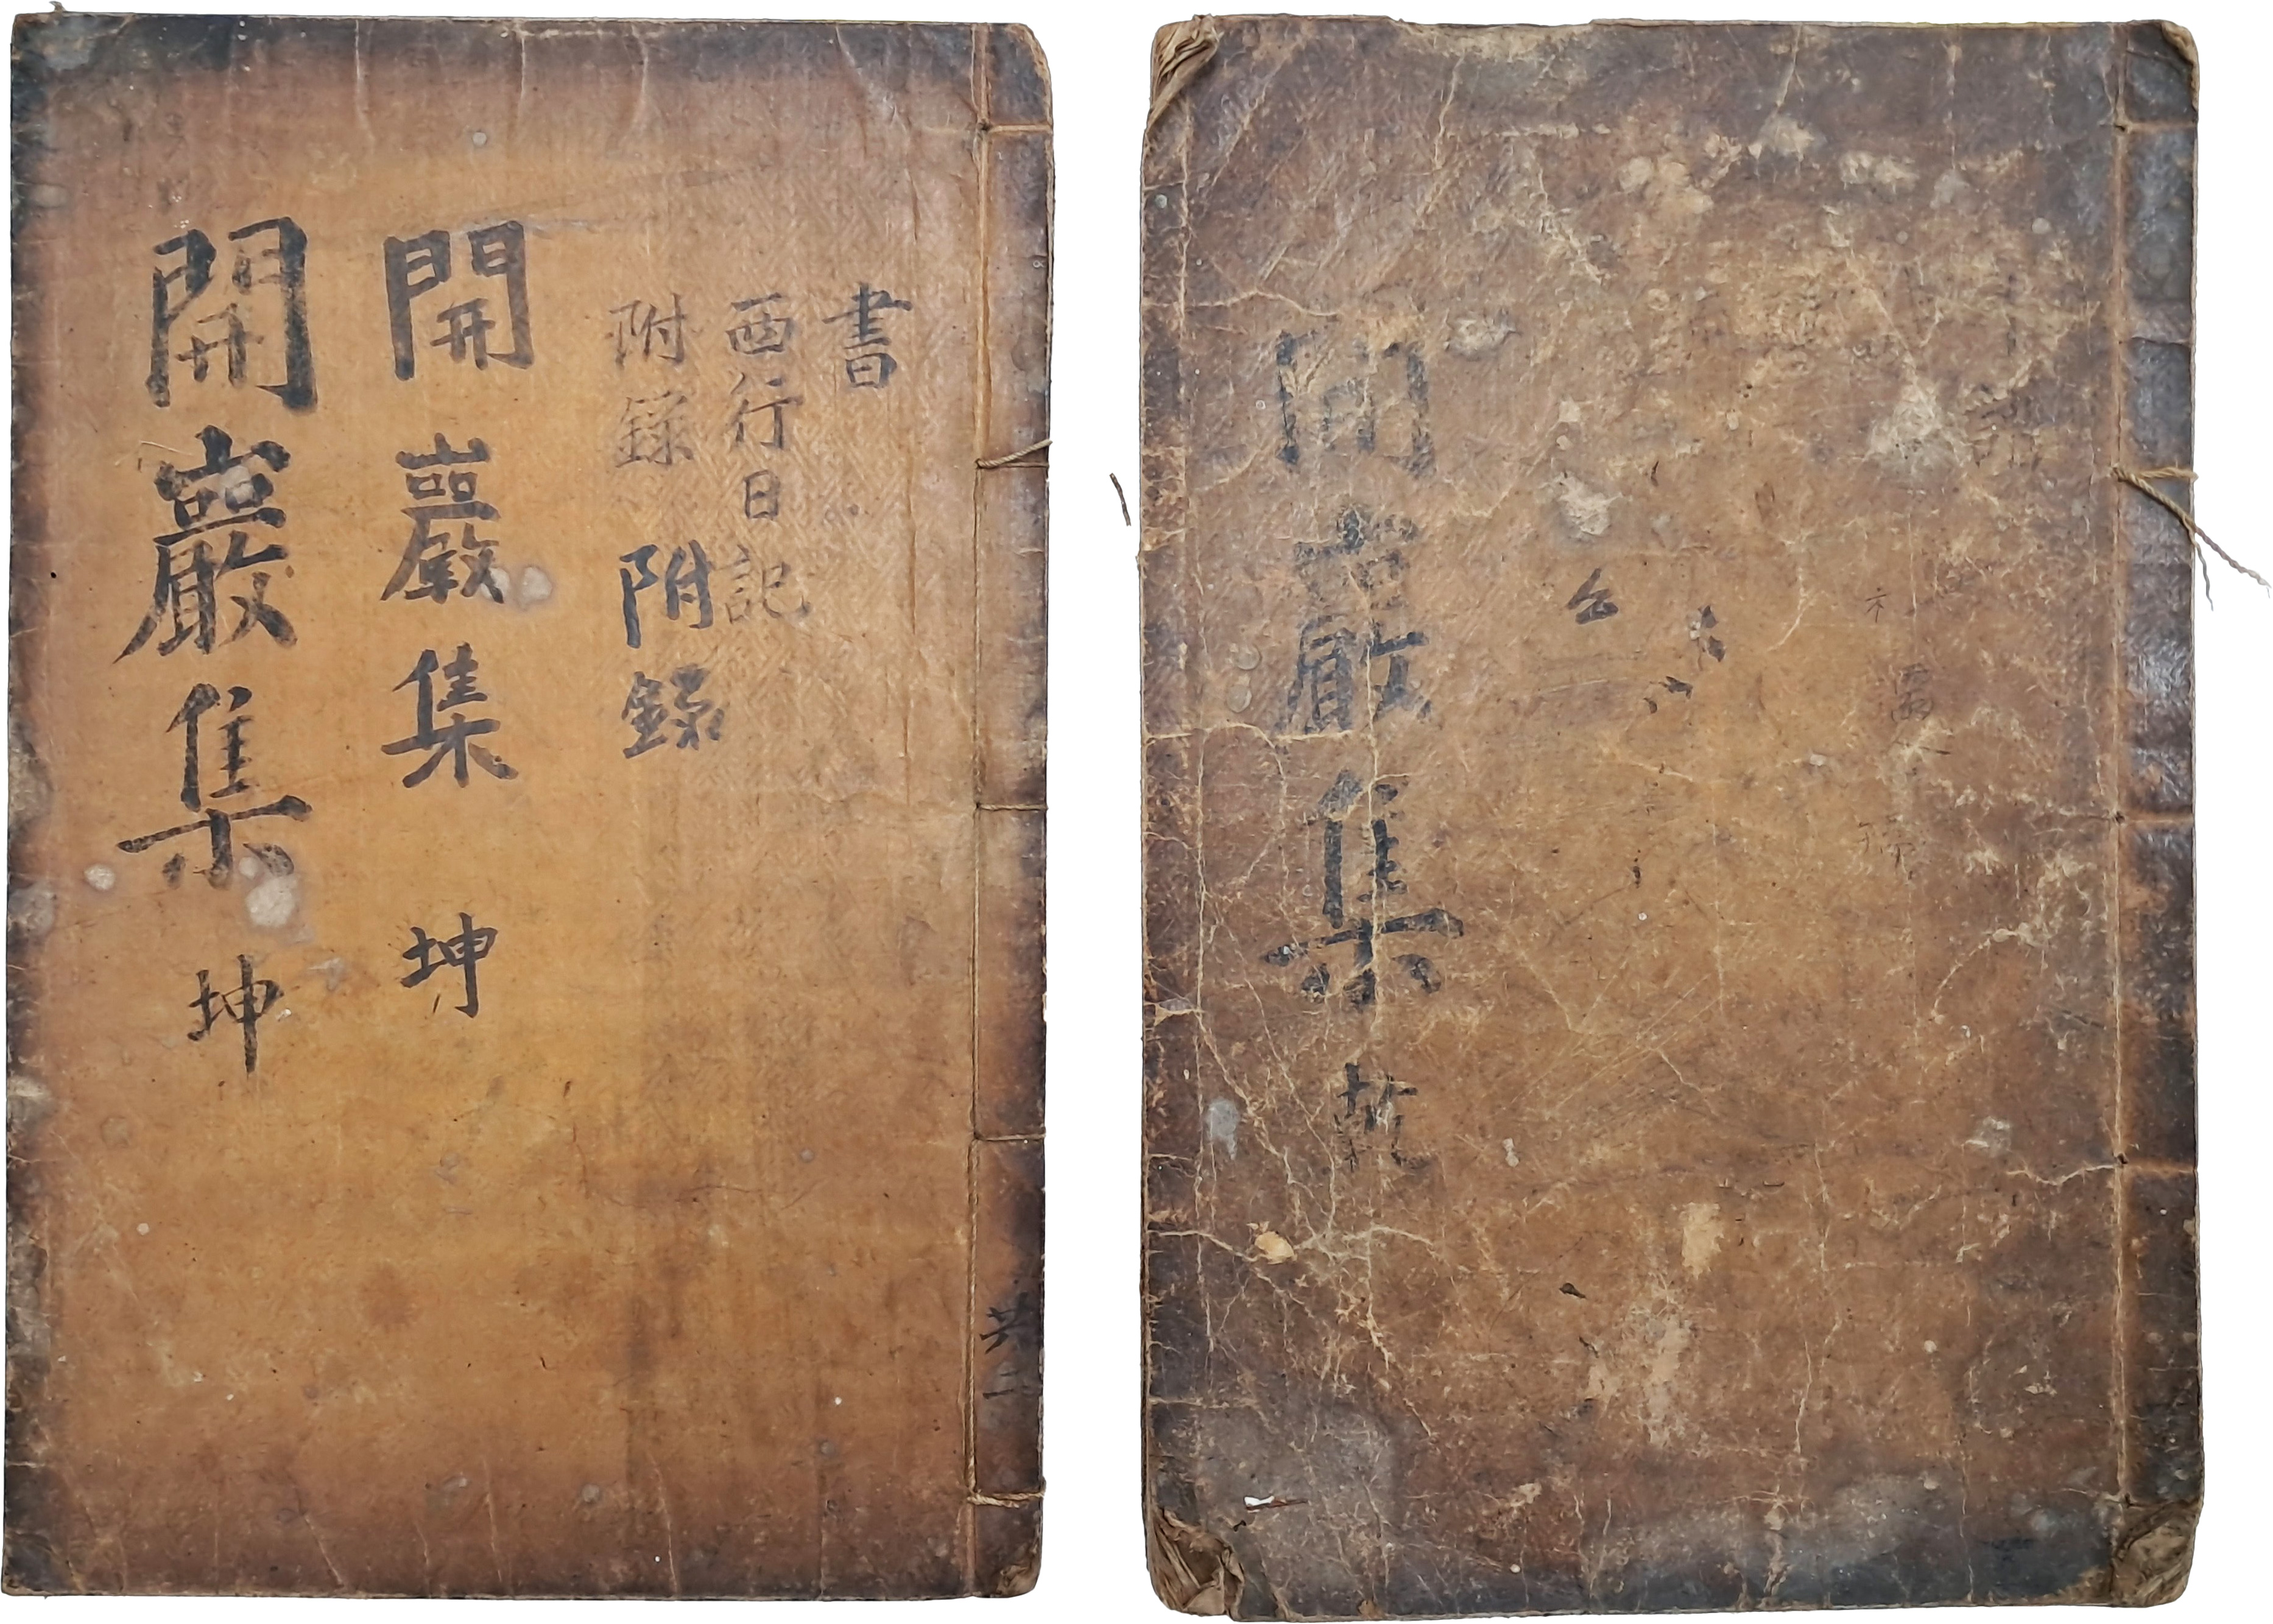 書
西行日記
附錄 附錄
開巖集 坤
開巖集 坤
共二
開巖集 乾